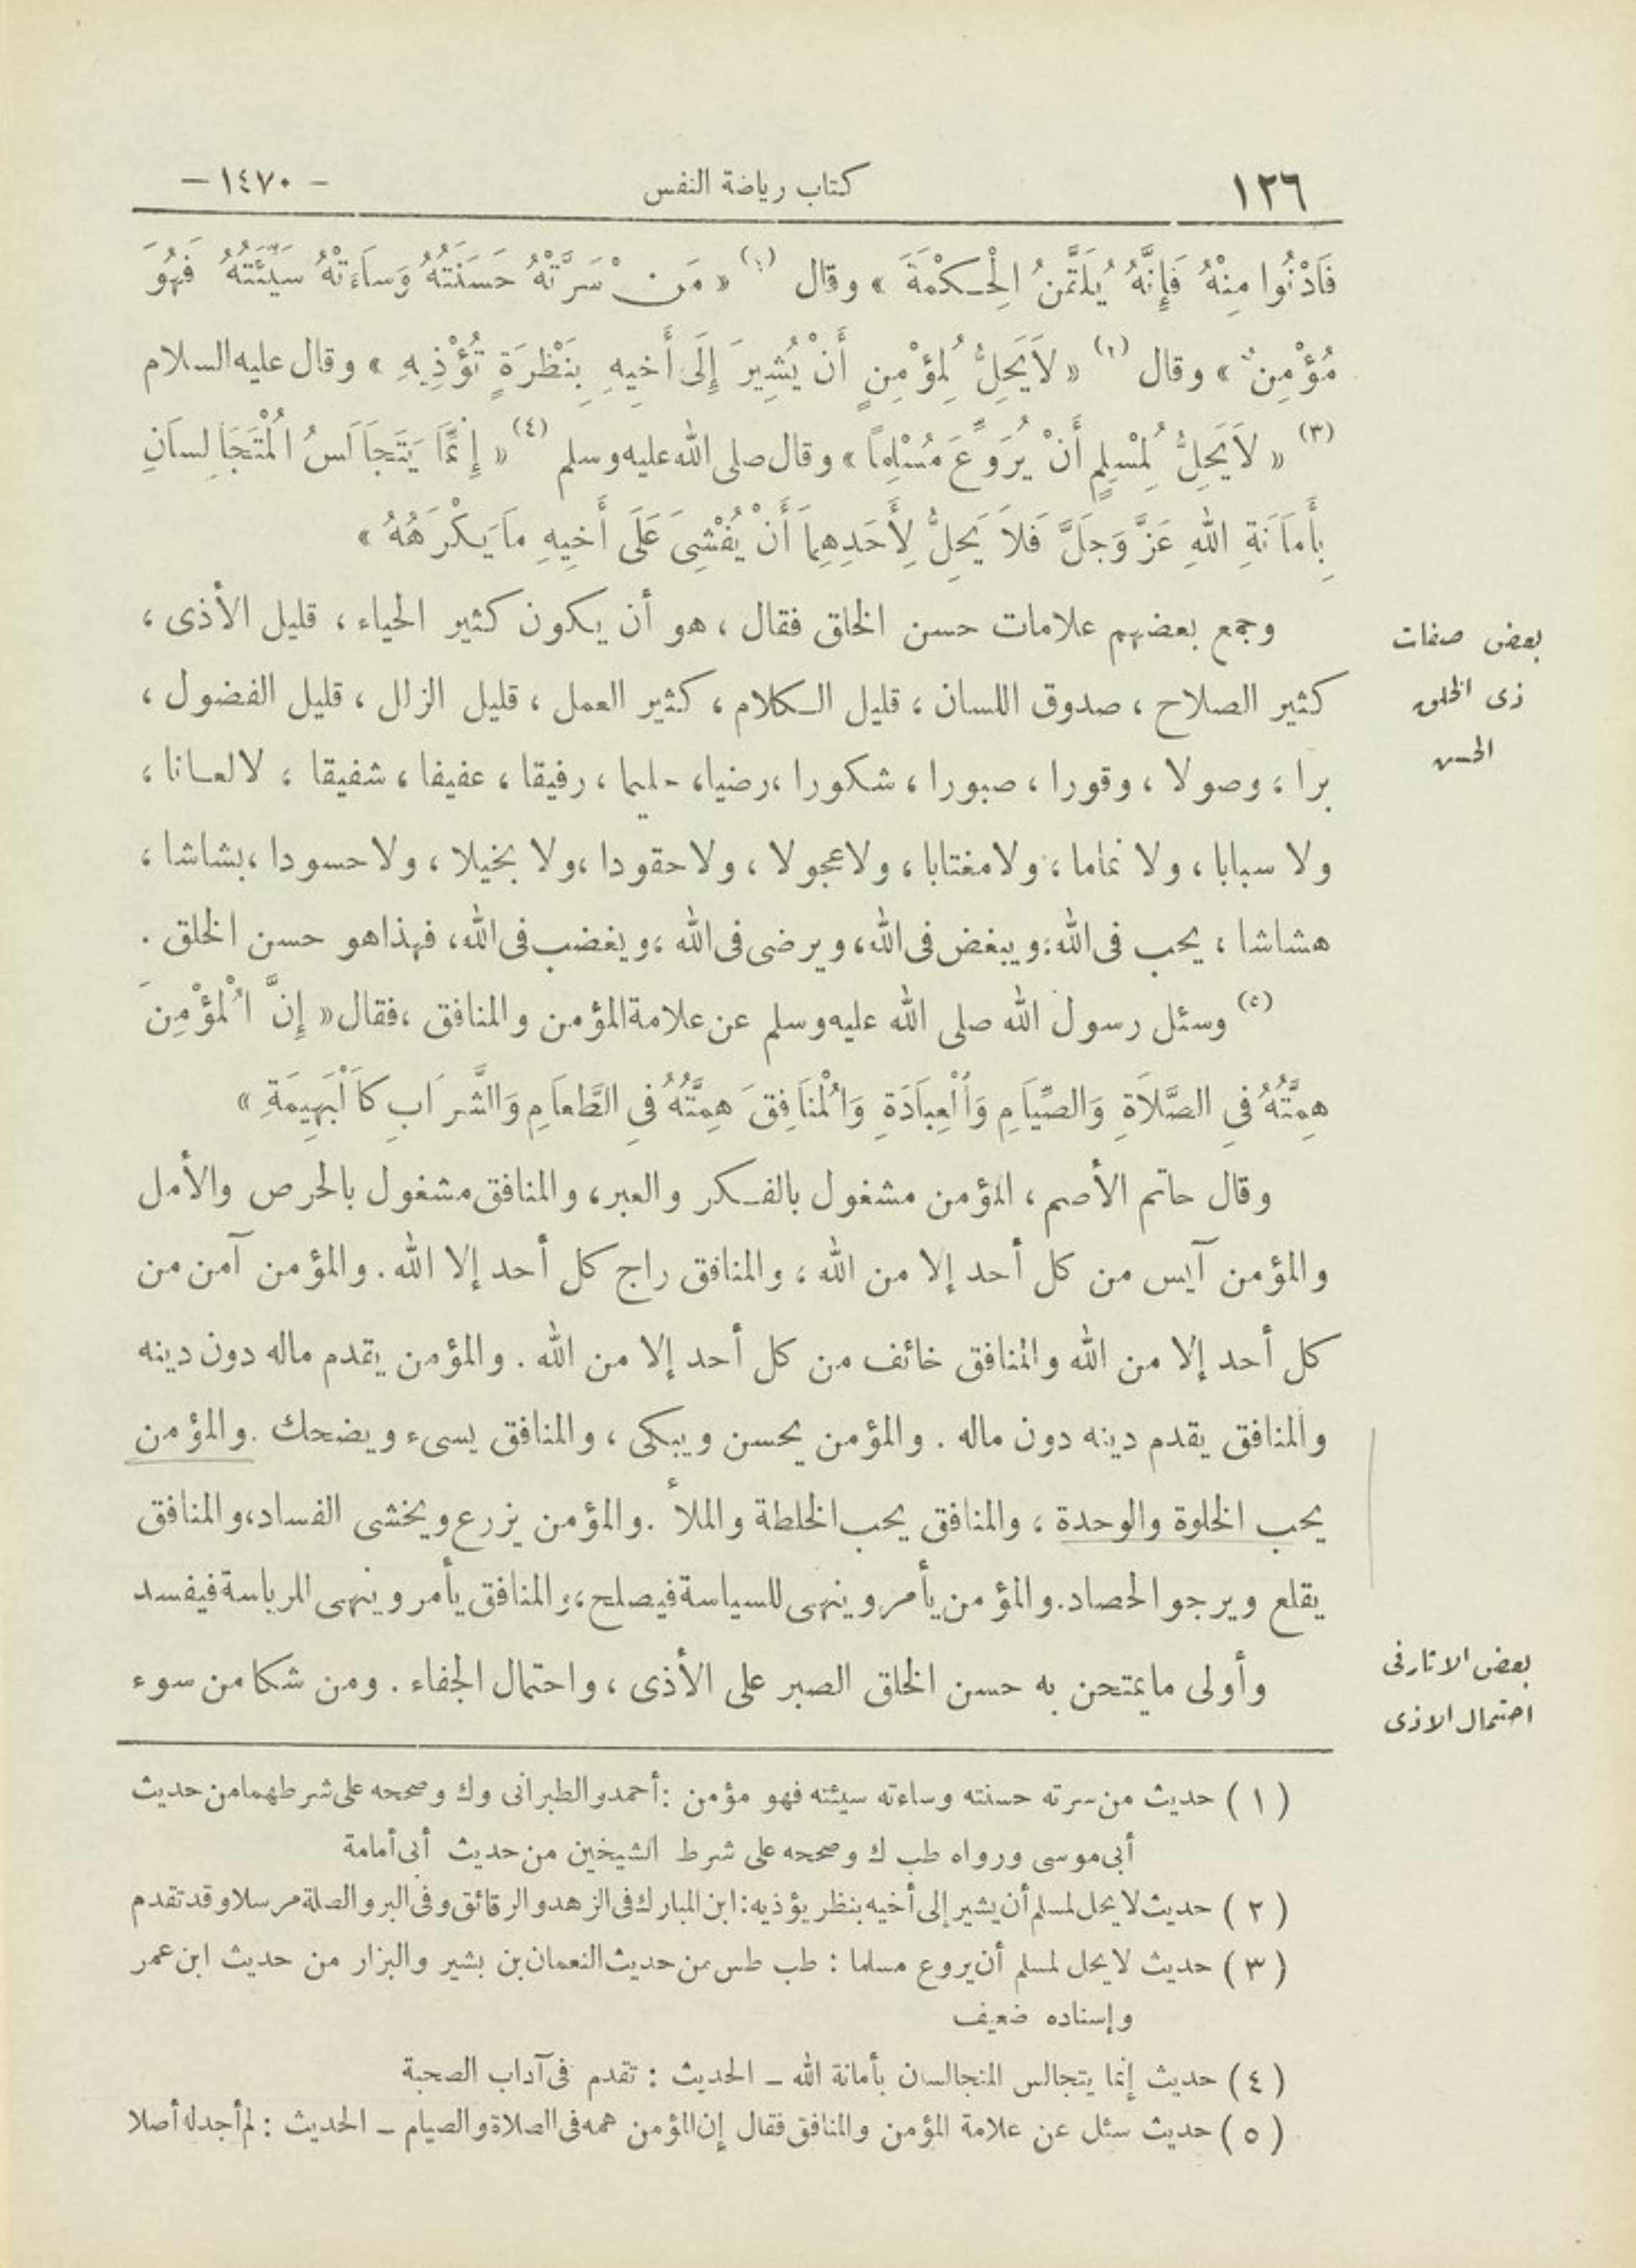 ١٢٦ كتاب رياضة النفس - ١٤٧٠ -
فَادْنُوا مِنْهُ فَإِنَّهُ يُلَقَّنُ الْحِكْمَةَ » وقال (١) « مَن سَرَّتْهُ حَسَنَتُهُ وَسَاءَتْهُ سَيِّئَتُهُ فَهُوَ
مُؤْمِنٌ » وقال (٢) « لَا يَحِلُّ لِمُؤْمِنٍ أَنْ يُشِيرَ إِلَى أَخِيهِ بِنَظْرَةٍ تُؤْذِيهِ » وقال عليه السلام
(٣) « لَا يَحِلُّ لِمُسْلِمٍ أَنْ يُرَوِّعَ مُسْلِمًا » وقال صلى الله عليه وسلم (٤) « إِنَّمَا يَتَجَالَسُ الْمُتَجَالِسَانِ
بِأَمَانَةِ اللهِ عَزَّ وَجَلَّ فَلَا يَحِلُّ لِأَحَدِهِمَا أَنْ يُفْشِىَ عَلَى أَخِيهِ مَا يَكْرَهُهُ »
وجمع بعضهم علامات حسن الخلق فقال ، هو أن يكون كثير الحياء ، قليل الأذى ،
بعض صفات
ذى الخلق
الحسن
كثير الصلاح ، صدوق اللسان ، قليل الكلام ، كثير العمل ، قليل الزلل ، قليل الفضول ،
برا ، وصولا ، وقورا ، صبورا ، شكورا ، رضيا ، حليما ، رفيقا ، عفيفا ، شفيقا ، لا لعانا ،
ولا سبابا ، ولا نماما ، ولا مغتابا ، ولا عجولا ، ولا حقودا ، ولا بخيلا ، ولا حسودا ، بشاشا ،
هشاشا ، يحب فى الله ، ويبغض فى الله ، ويرضى فى الله ، ويغضب فى الله ، فهذا هو حسن الخلق .
(٥) وسئل رسول الله صلى الله عليه وسلم عن علامة المؤمن والمنافق ، فقال « إِنَّ الْمُؤْمِنَ
هِمَّتُهُ فِى الصَّلَاةِ وَالصِّيَامِ وَالْعِبَادَةِ وَالْمُنَافِقَ هِمَّتُهُ فِى الطَّعَامِ وَالشَّرَابِ كَالْبَهِيمَةِ »
وقال حاتم الأصم ، المؤمن مشغول بالفكر والعبر ، والمنافق مشغول بالحرص والأمل
والمؤمن آيس من كل أحد إلا من الله ، والمنافق راج كل أحد إلا الله . والمؤمن آمن من
كل أحد إلا من الله والمنافق خائف من كل أحد إلا من الله . والمؤمن يقدم ماله دون دينه
والمنافق يقدم دينه دون ماله . والمؤمن يحسن ويبكى ، والمنافق يسىء ويضحك . والمؤمن
يحب الخلوة والوحدة ، والمنافق يحب الخلطة والملأ . والمؤمن يزرع ويخشى الفساد ، والمنافق
يقلع ويرجو الحصاد . والمؤمن يأمر وينهى للسياسة فيصلح ، والمنافق يأمر وينهى للرياسة فيفسد
وأولى ما يمتحن به حسن الخلق الصبر على الأذى ، واحتمال الجفاء . ومن شكا من سوء
بعض الاثار فى
احتمال الاذى
( ١ ) حديث من سرته حسنته وساءته سيئته فهو مؤمن : أحمد والطبرانى وك وصححه على شرطهما من حديث
أبى موسى ورواه طب ك وصححه على شرط الشيخين من حديث أبى أمامة
( ٢ ) حديث لا يحل لمسلم أن يشير إلى أخيه بنظر يؤذيه : ابن المبارك فى الزهد والرقائق وفى البر والصلة مرسلا وقد تقدم
( ٣ ) حديث لا يحل لمسلم أن يروع مسلما : طب طس من حديث النعمان بن بشير والبزار من حديث ابن عمر
وإسناده ضعيف
( ٤ ) حديث إنما يتجالس المتجالسان بأمانة الله - الحديث : تقدم فى آداب الصحبة
( ٥ ) حديث سئل عن علامة المؤمن والمنافق فقال إن المؤمن همه فى الصلاة والصيام - الحديث : لم أجد له أصلا